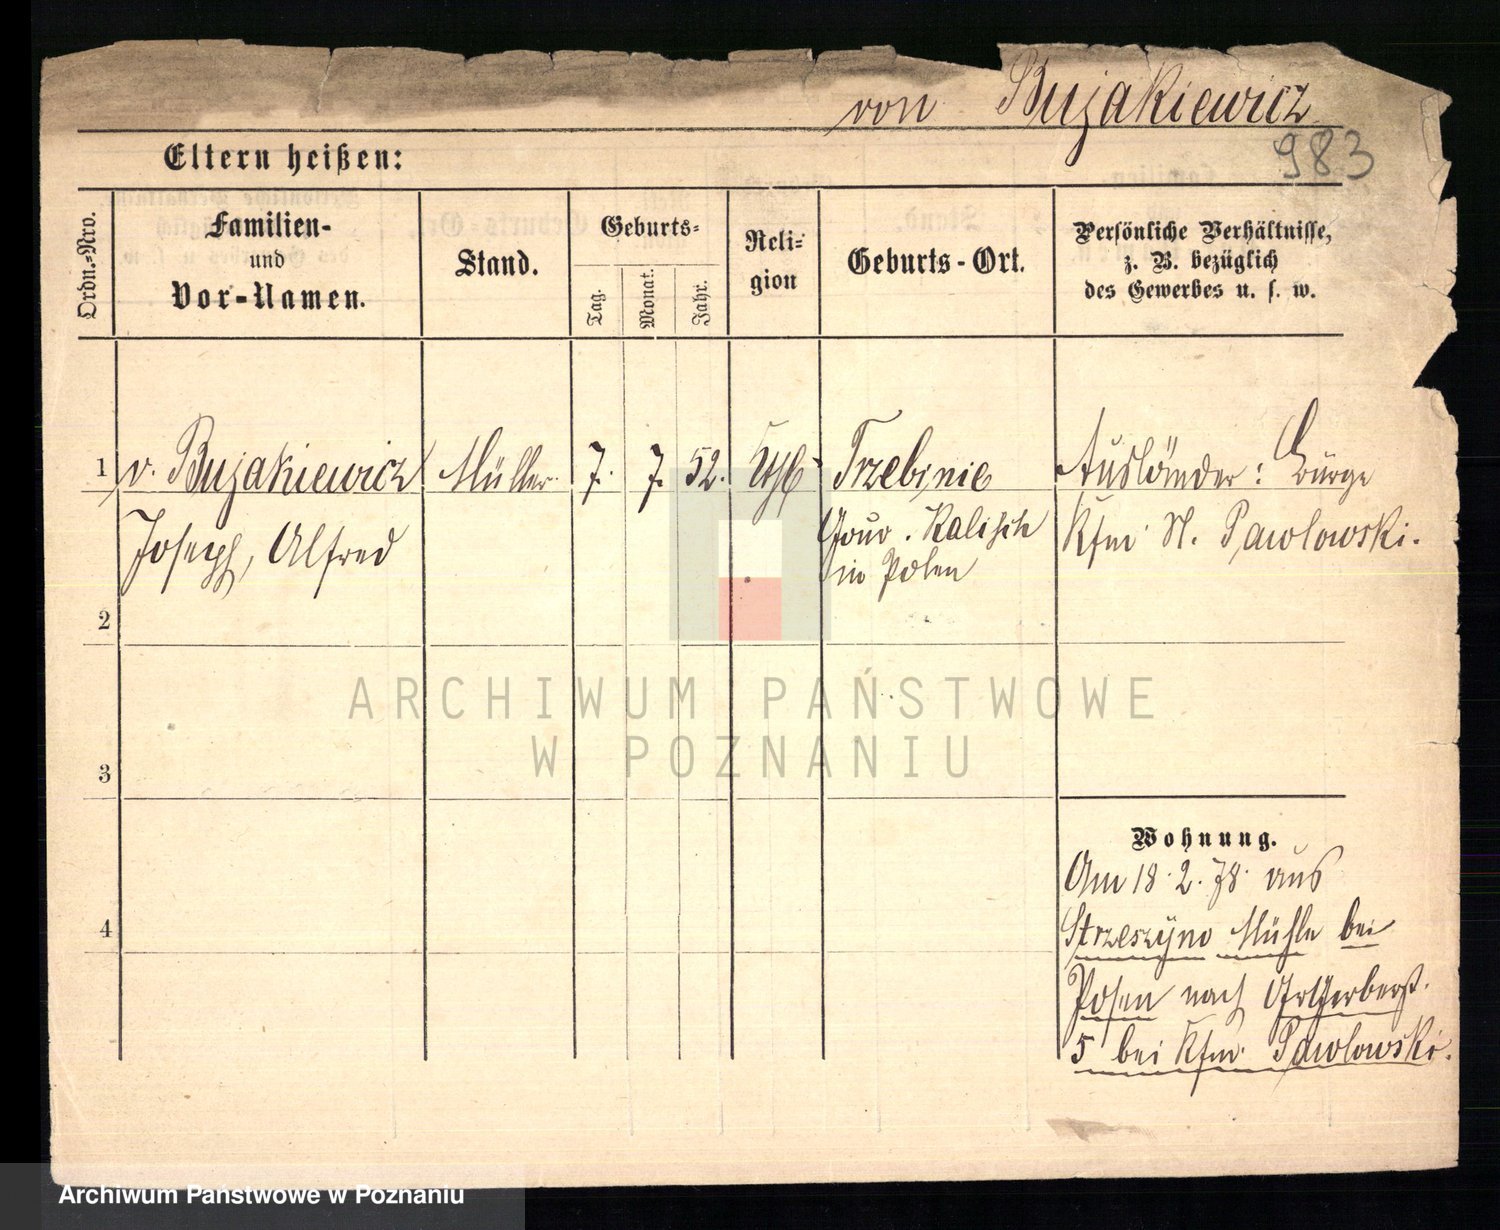 von Bujakiewicz
983
Eltern heißen:
Ordn.-Nro.
Familien-
und
Vor-Namen.
Stand.
Geburts-
Tag.
Monat.
Jahr.
Reli-
gion
Geburts-Ort.
Persönliche Verhältnisse,
z. B. bezüglich
des Gewerbes u. s. w.
1 v. Bujakiewicz Müller 7. 7. 52. Trzebinie Ausländer: Bürge
Joseph, Alfred Gouv. Kalisch Kfm N. Pawlowski.
in Polen
2
3
4
Wohnung.
Am 18.2.78. aus
Strzeszyno Mühle bei
Posen nach GrGerberst.
5 bei Kfm. Pawlowski.
ARCHIWUM PAŃSTWOWE
W POZNANIU
Archiwum Państwowe w Poznaniu